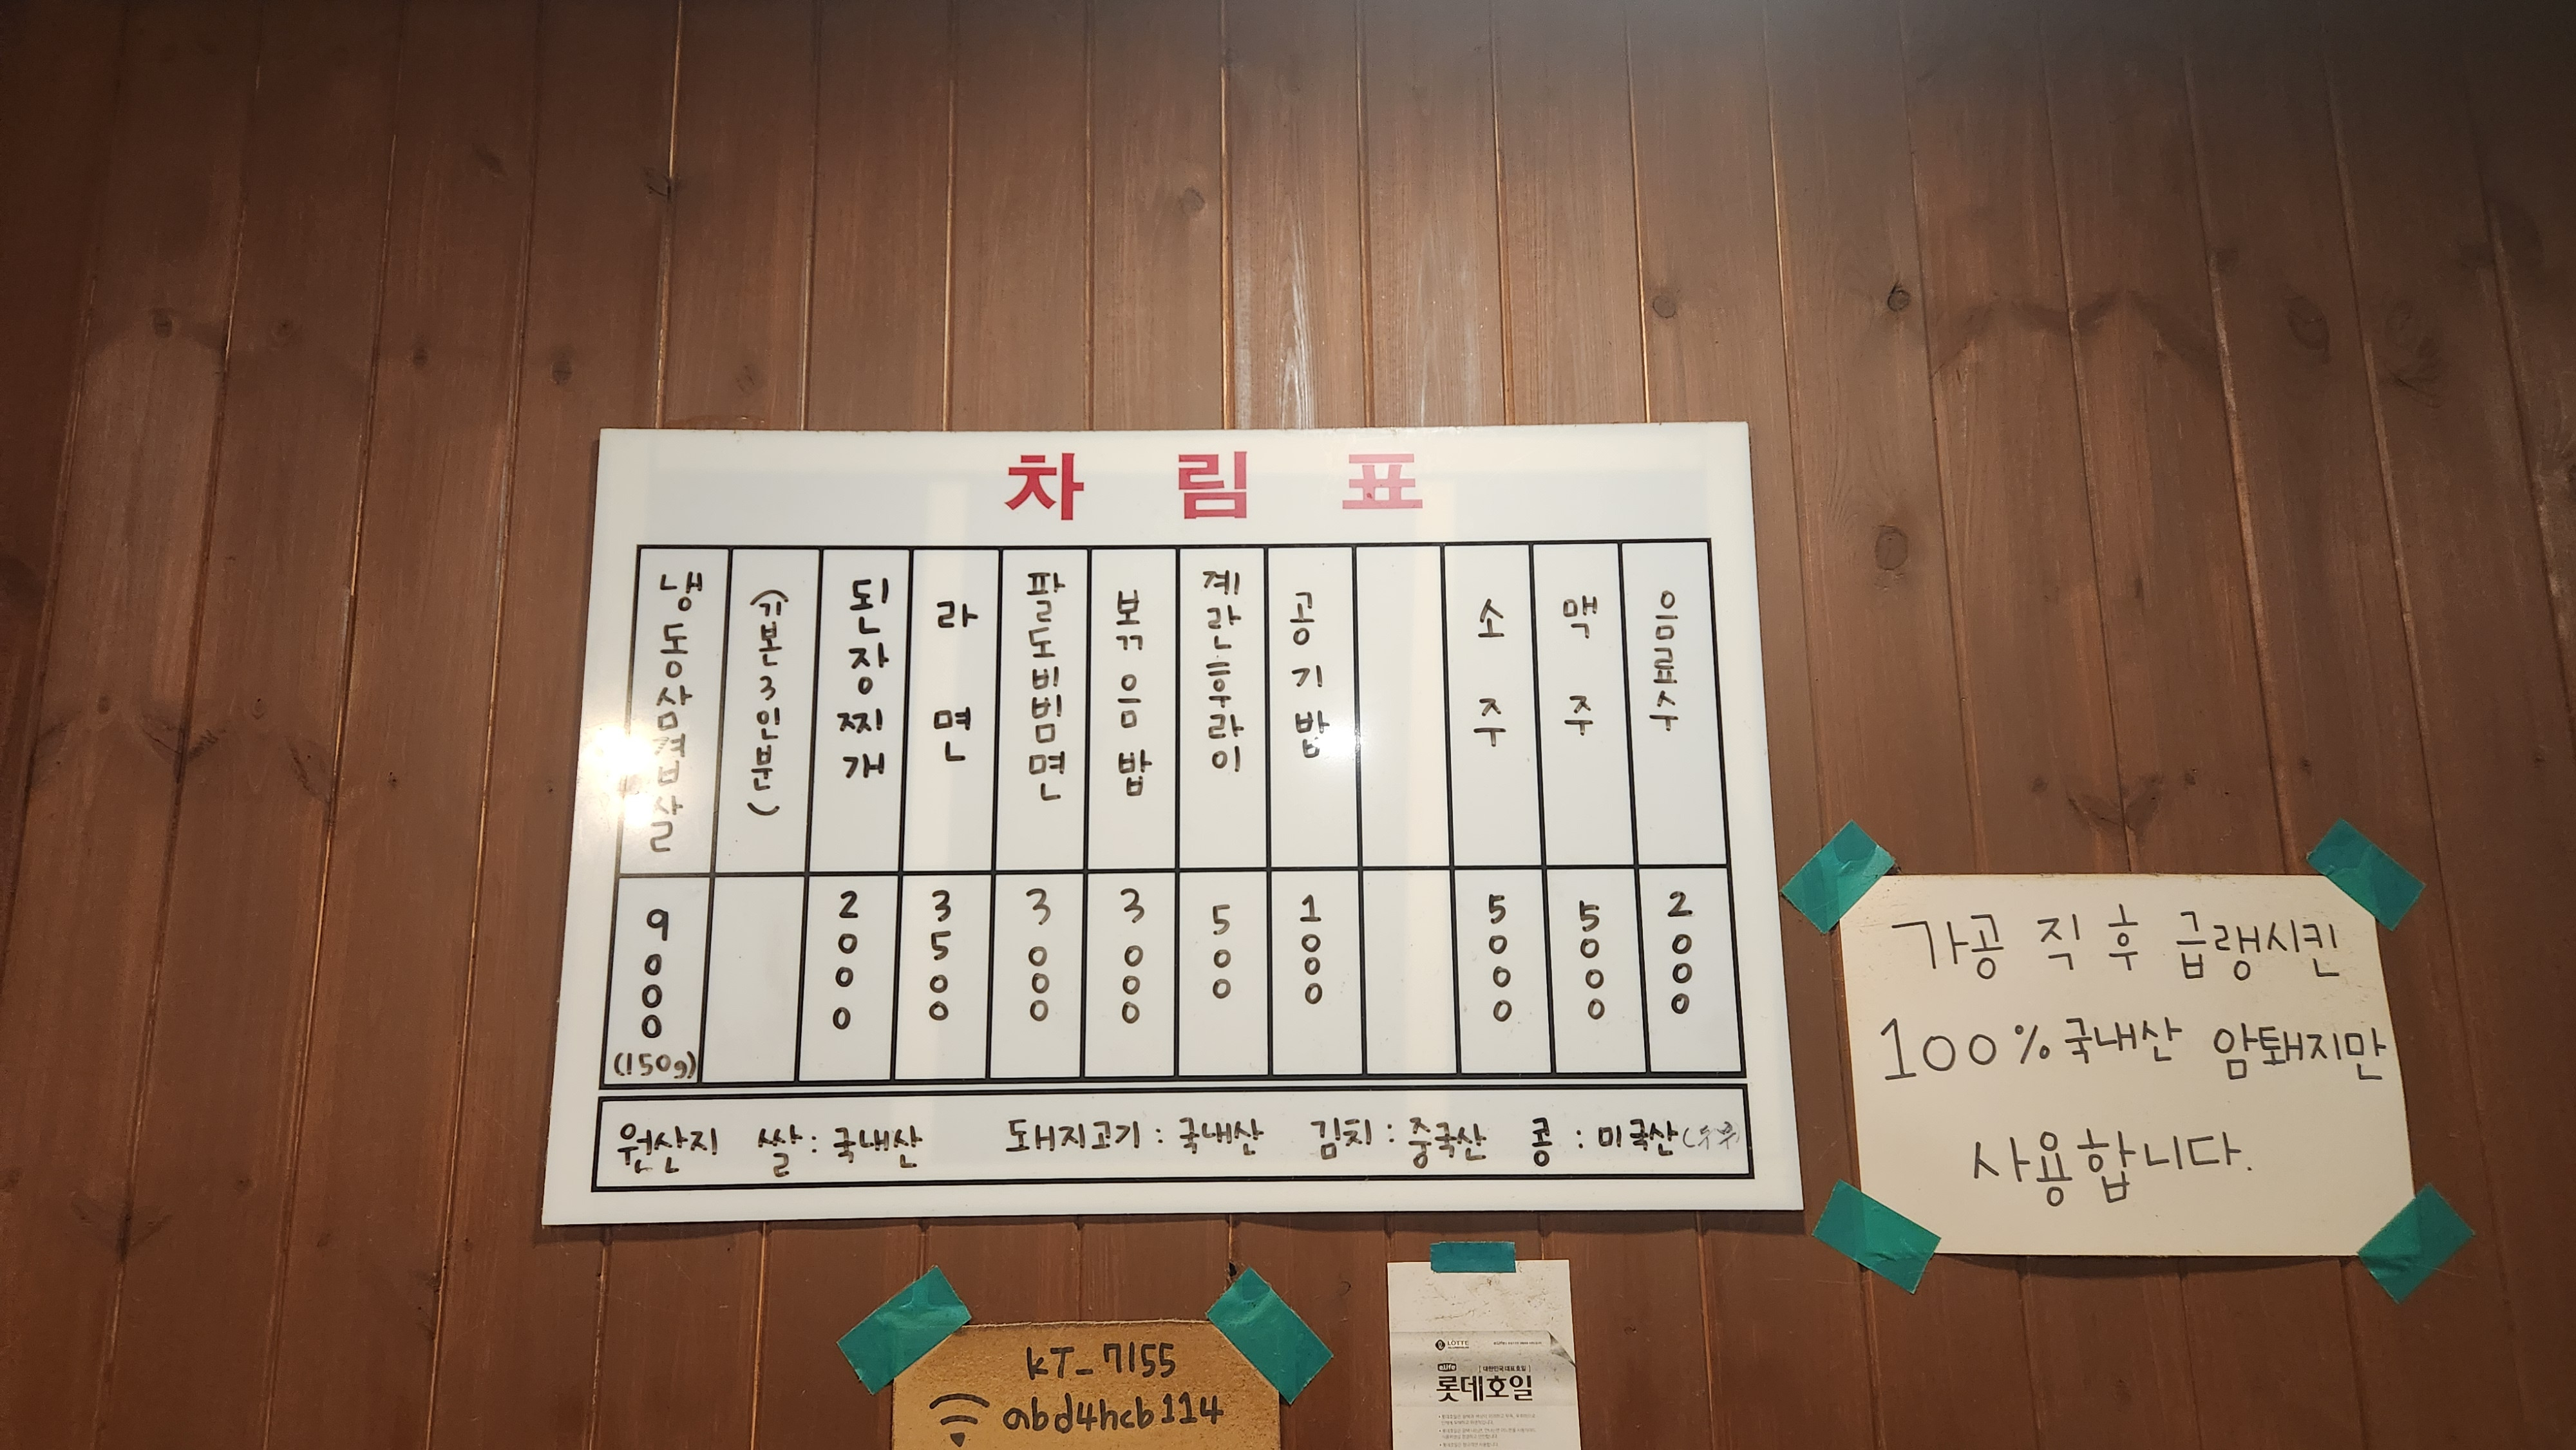 차림표
냉동삼겹살 9000 (150g)
(기본3인분)
된장찌개 2000
라면 3500
팔도비빔면 3000
볶음밥 3000
계란후라이 500
공기밥 1000
소주 5000
맥주 5000
음료수 2000
원산지 쌀: 국내산 돼지고기: 국내산 김치: 중국산 콩: 미국산(두부)
가공 직후 급랭시킨
100% 국내산 암퇘지만
사용합니다.
KT_7155
abd4hcb114
LOTTE
eLife [대한민국 대표 호일]
롯데호일